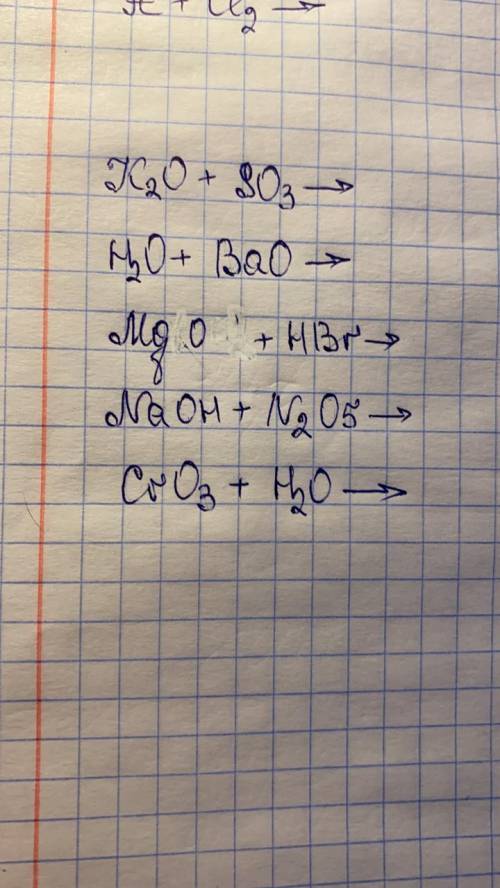 K₂O + SO₃ →
H₂O + BaO →
MgO + HBr →
NaOH + N₂O5 →
CrO₃ + H₂O →